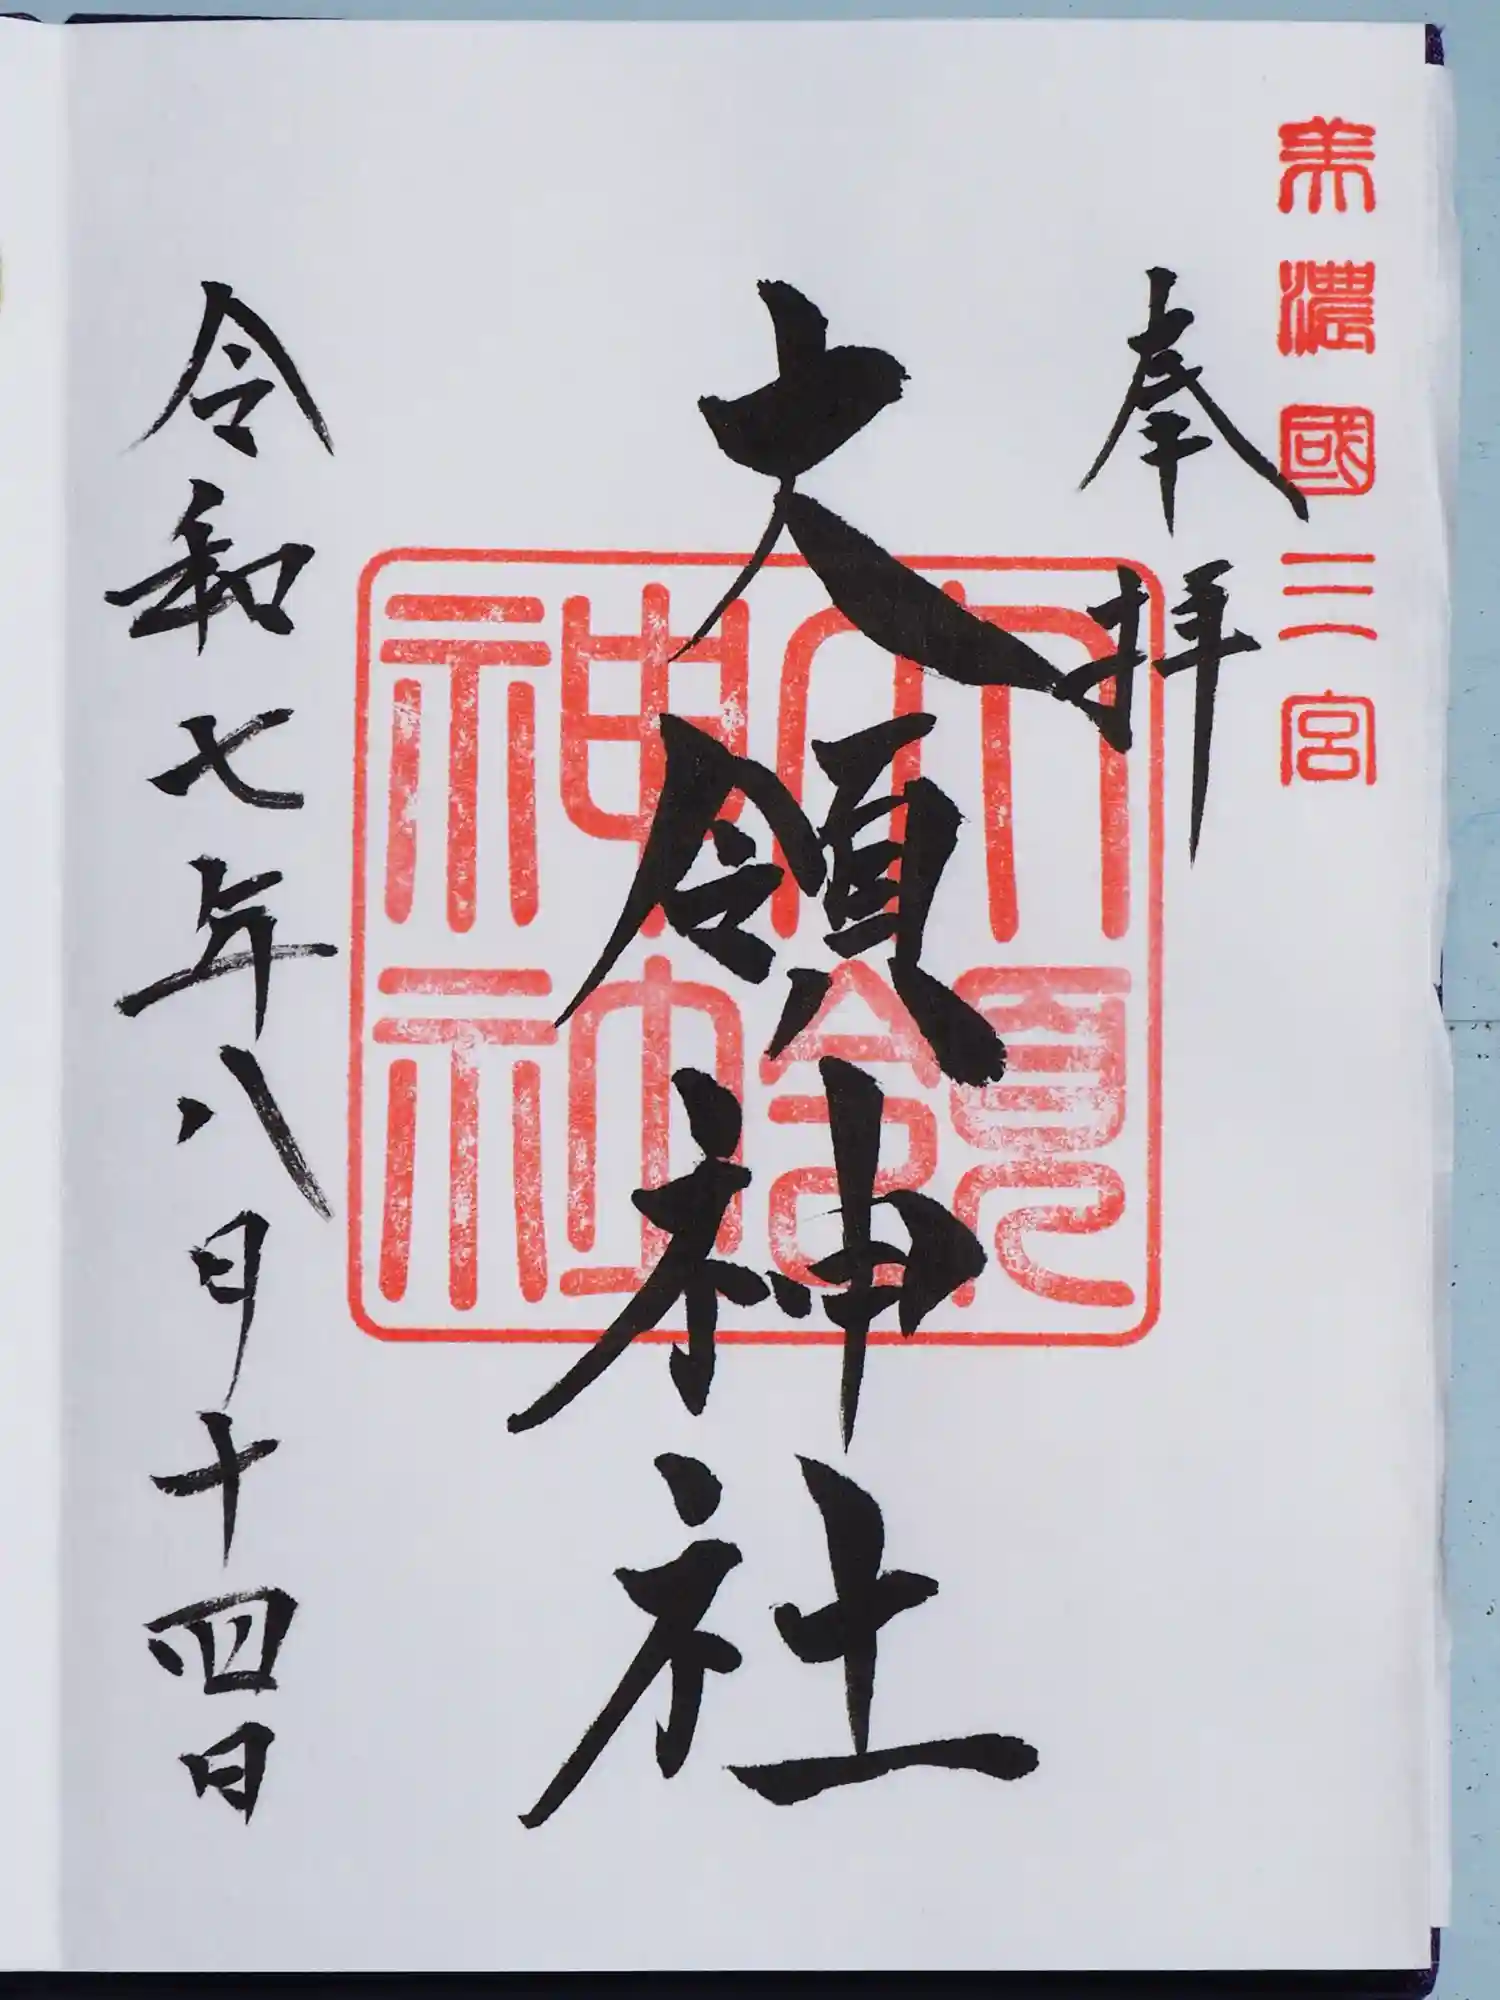 美濃國三宮
奉拝
大領神社
大領
神社
令和七年八月十四日